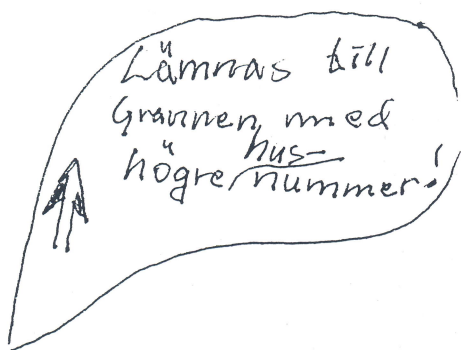 Lämnas till
Grannen med
högre hus-nummer!